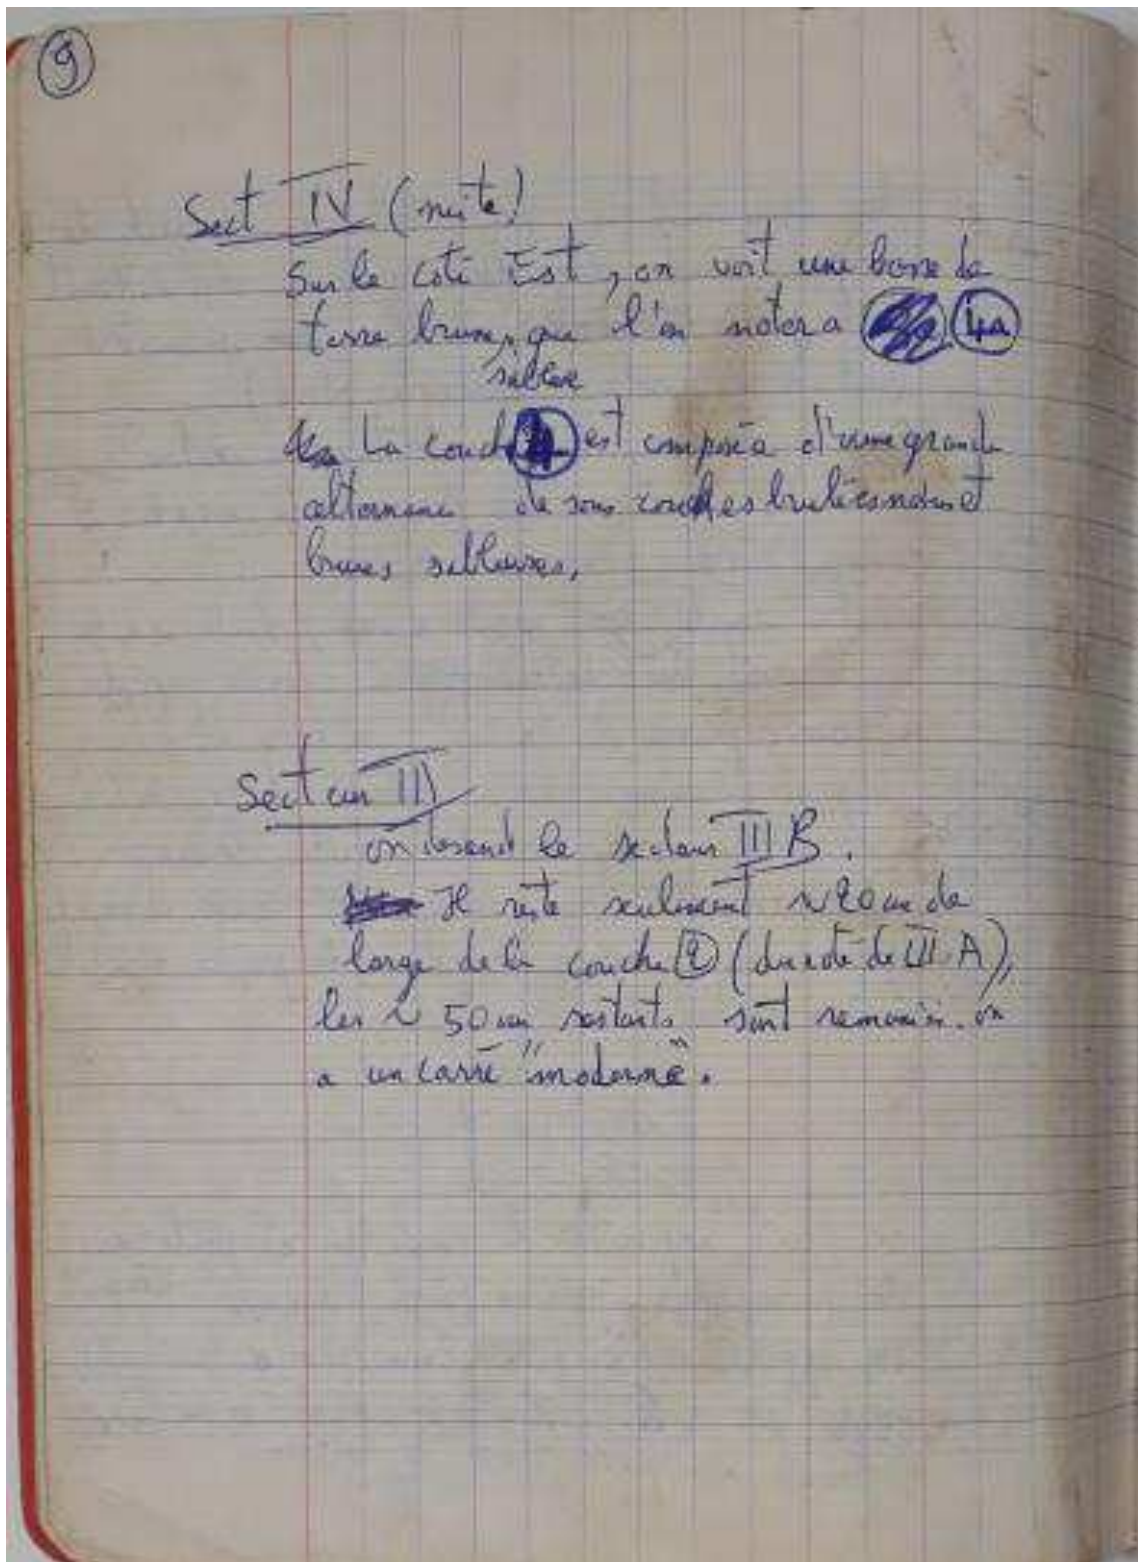 9
Sect IV (suite)
Sur le coté Est, on voit une de
terre brune, que l'on notera 4A
sableuse
La couche est composée d'une grande
alternance de sous couches brulées noires et
brunes sableuses.
Secteur III
on descend le secteur III B.
Il reste seulement ~ 20 cm de
large de la couche 2 (du coté de III A),
les ~ 50 cm restants sont remaniés. on
a un carré "moderne".